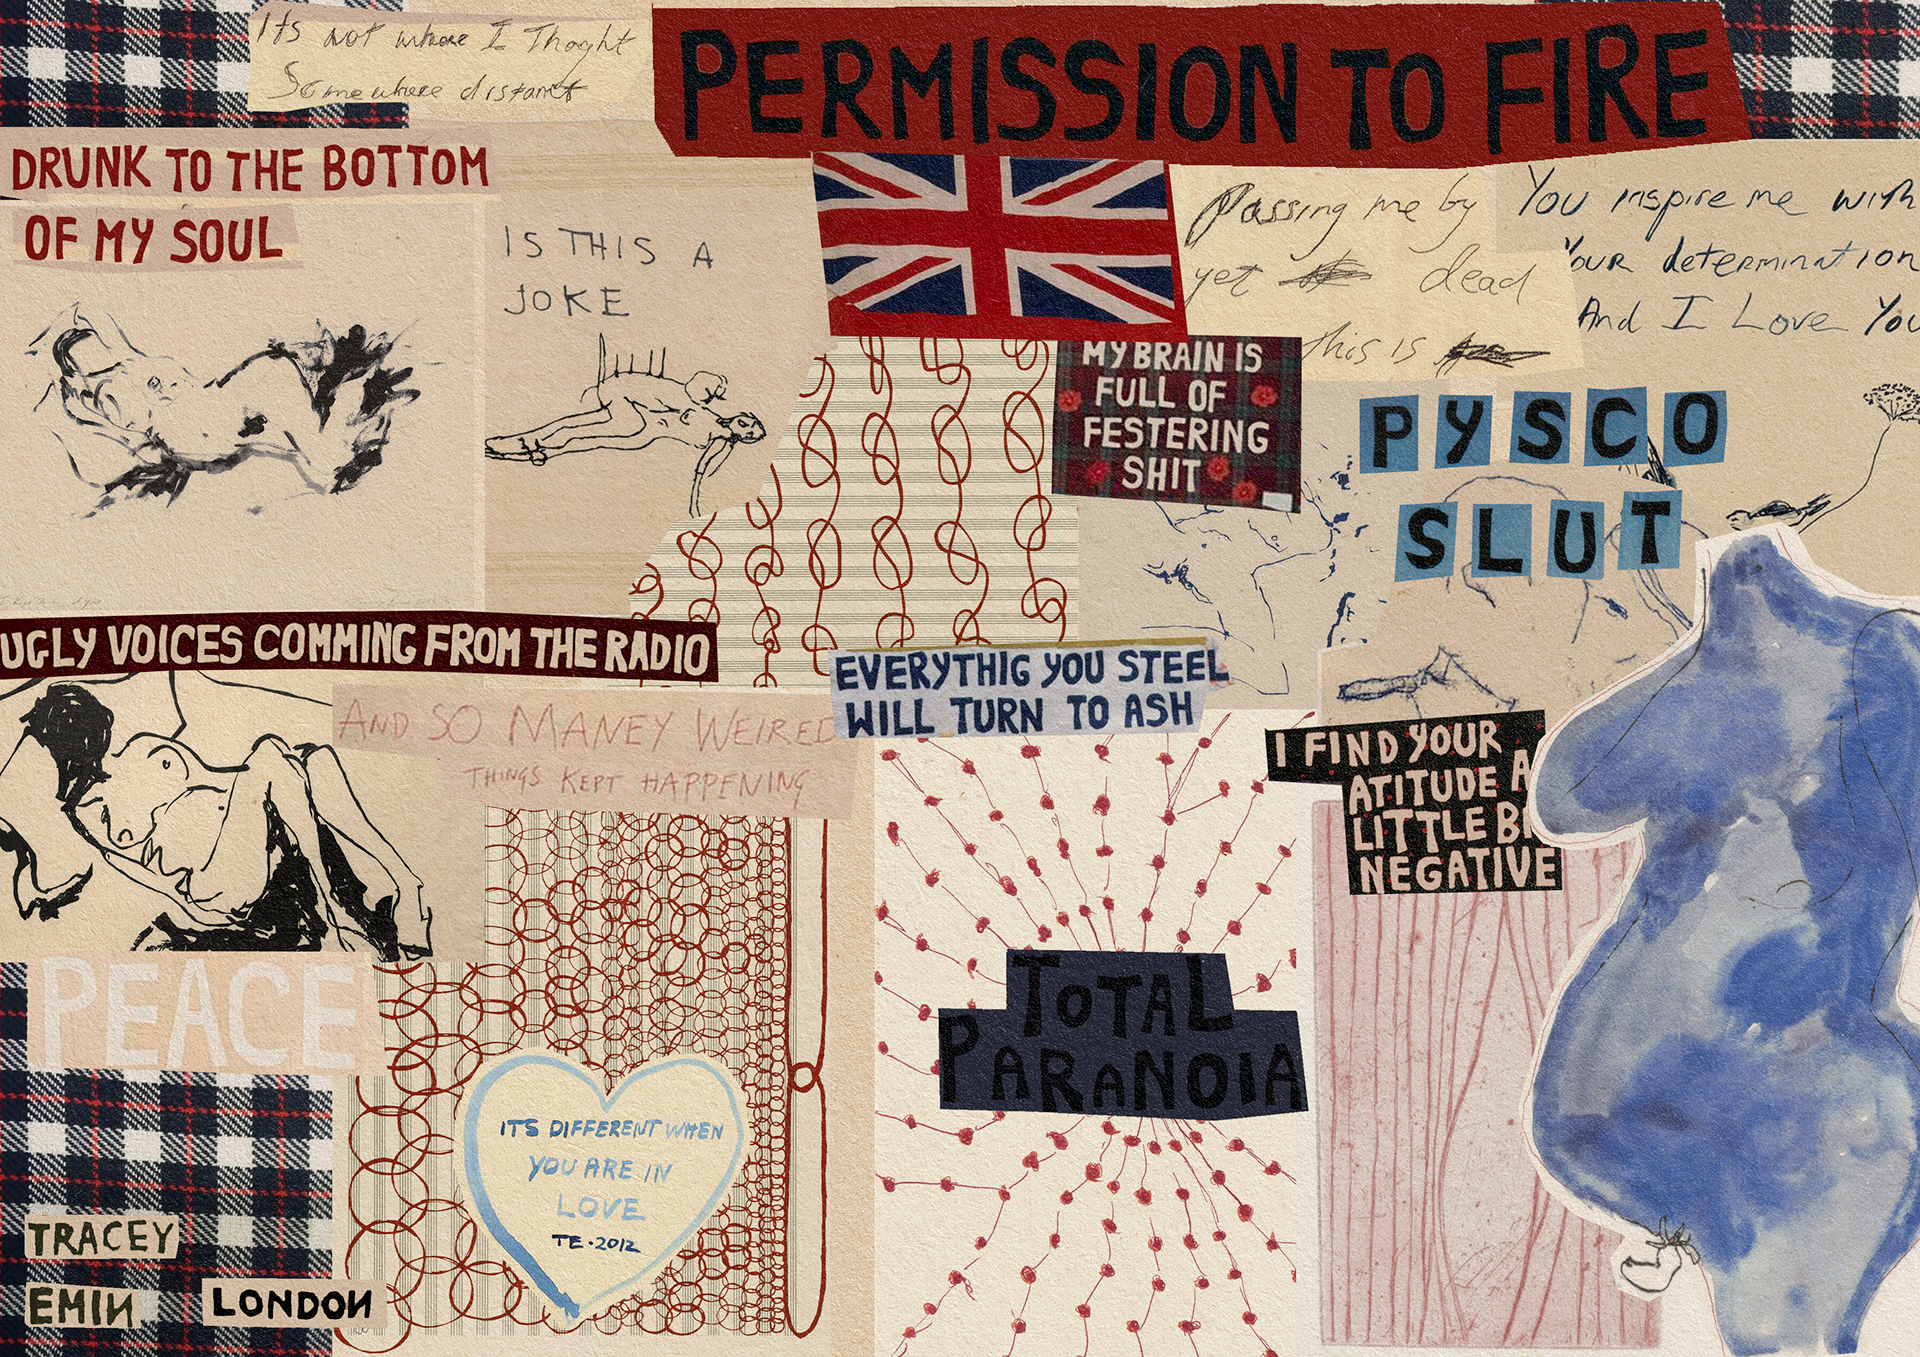 Its not where I Thoght
Somewhere distant
PERMISSION TO FIRE
DRUNK TO THE BOTTOM
OF MY SOUL
IS THIS A
JOKE
Passing me by
yet dead
this is
You inspire me with
Your determination
And I Love You
MY BRAIN IS
FULL OF
FESTERING
SHIT
PYSCO
SLUT
UGLY VOICES COMMING FROM THE RADIO
EVERYTHIG YOU STEEL
WILL TURN TO ASH
AND SO MANEY WEIRED
THINGS KEPT HAPPENING
I FIND YOUR
ATITUDE A
LITTLE BI
NEGATIVE
PEACE
TOTAL
PARANOIA
ITS DIFFERENT WHEN
YOU ARE IN
LOVE
TE·2012
TRACEY
EMIN
LONDON